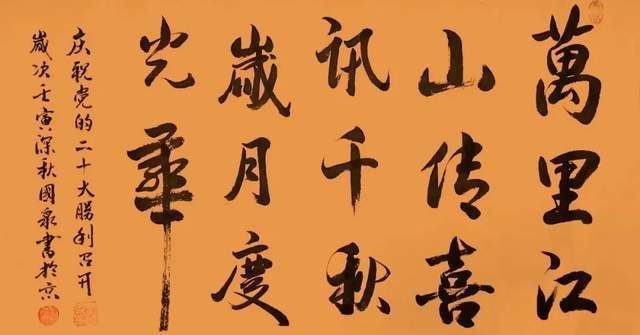 萬里江
山传喜
讯千秋
歲月度
光華
庆祝党的二十大勝利召开
歲次壬寅深秋國泉書於京